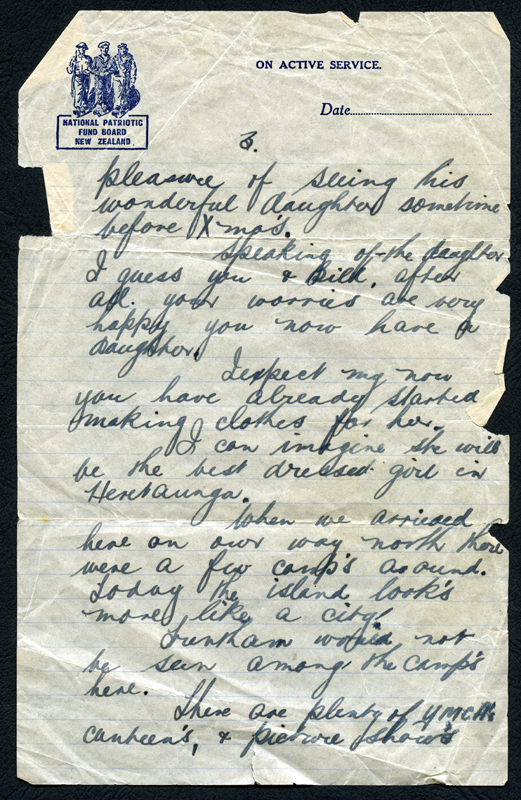 ON ACTIVE SERVICE.
NATIONAL PATRIOTIC
FUND BOARD
NEW ZEALAND.
Date
3.
pleasure of seeing his
wonderful daughter sometime
before Xmas.
Speaking of the daughter
I guess you & Bill, after
all your worries are very
happy you now have a
daughter.
I expect my now
you have already started
making clothes for her.
I can imagine she will
be the best dressed girl in
Heretaunga.
When we arrived
here on our way north there
were a few camp's around.
Today the island look's
more like a city!
Trentham would not
be seen among the camp's
here.
There are plenty of YMCA.
canteen's, & picture show's